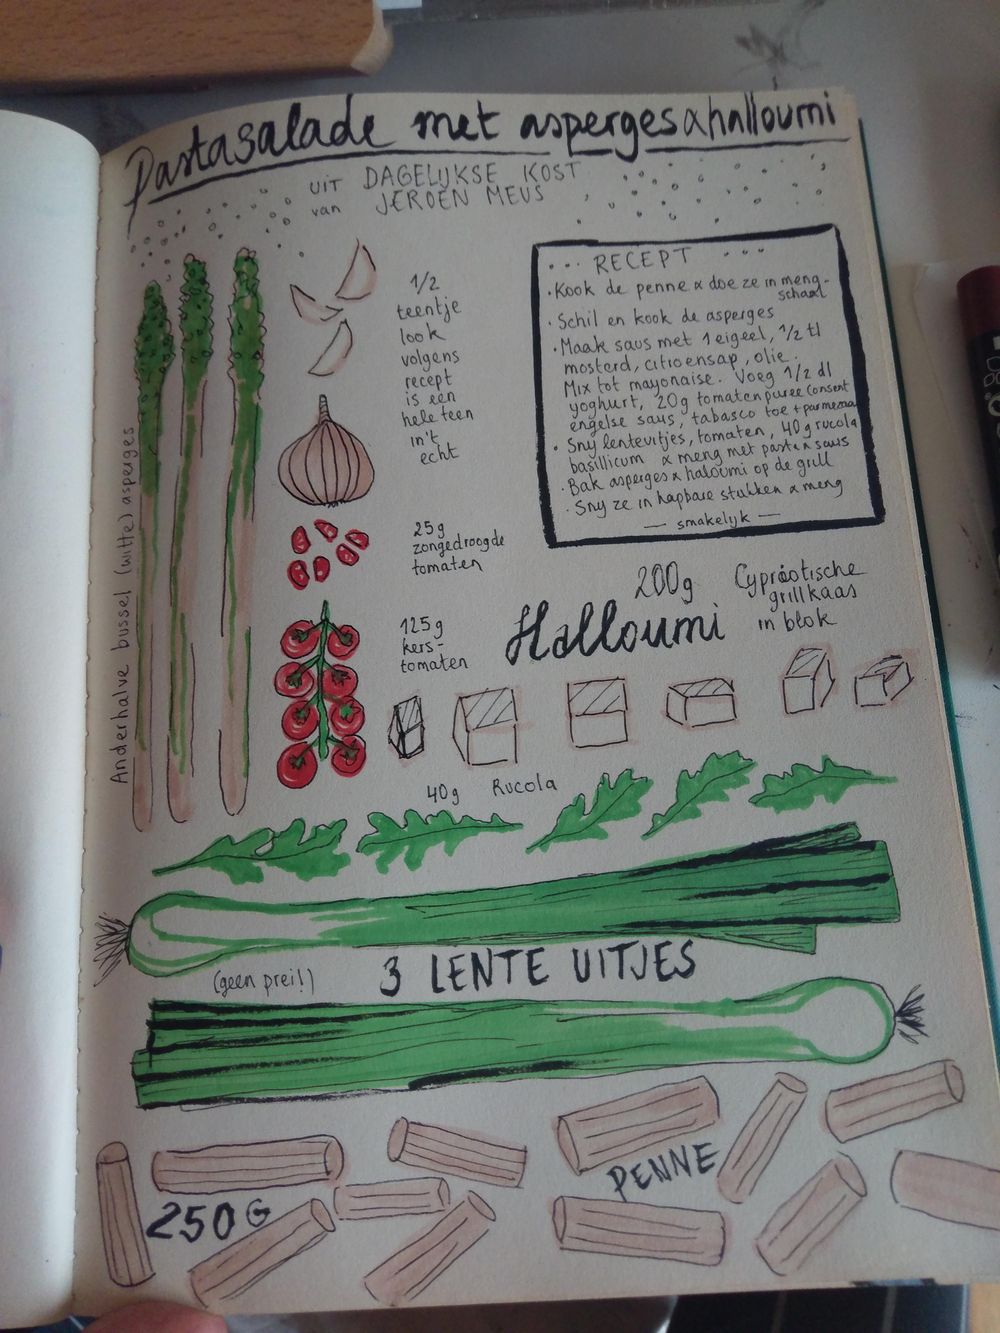 Pastasalade met asperges & halloumi
UIT DAGELIJKSE KOST
van JEROEN MEUS
1/2
teentje
look
volgens
recept
is een
hele teen
in't
echt
Anderhalve bussel (witte) asperges
25g
zongedroogde
tomaten
125g
kers-
tomaten
... RECEPT ...
· Kook de penne & doe ze in meng-
schaal
· Schil en kook de asperges
· Maak saus met 1 eigeel, 1/2 tl
mosterd, citroensap, olie.
Mix tot mayonaise. Voeg 1/2 dl
yoghurt, 20g tomatenpuree
engelse saus, tabasco toe + parmezaan
· Sny lentevitjes, tomaten, 40g rucola
basillicum & meng met pasta & saus
· Bak asperges & haloumi op de grill
· Sny ze in hapbare stukken & meng
— smakelijk —
200g
Halloumi
Cypriotische
grillkaas
in blok
40g Rucola
3 LENTE UITJES
(geen prei!)
PENNE
250G